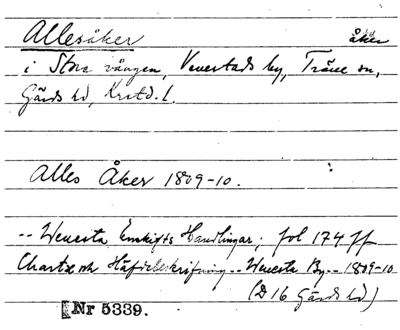 Allesåker åker
i Stora vången, Venestads by, Träne sn,
Gärds hd, Krstd. l.
Alles Åker 1809-10.
-- Wenesta Enskifts Handlingar; fol 174 ff
Charta och Häfdebeskrifning -- Wenesta By -- 1809-10
(D 16 Gärds hd)
Nr 5339.